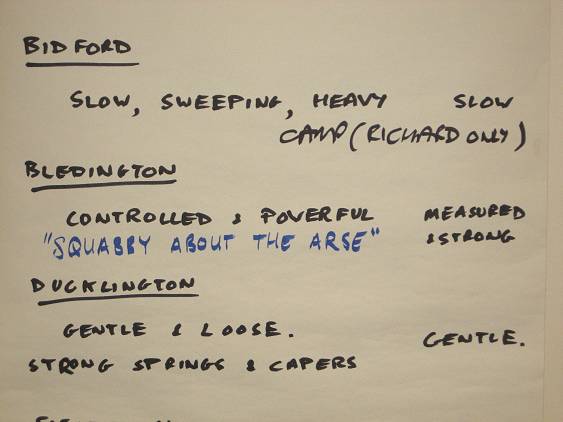 BIDFORD
SLOW, SWEEPING, HEAVY SLOW
CAMP (RICHARD ONLY)
BLEDINGTON
CONTROLLED & POVERFUL MEASURED
"SQUABBY ABOUT THE ARSE" & STRONG
DUCKLINGTON
GENTLE & LOOSE. GENTLE.
STRONG SPRINGS & CAPERS